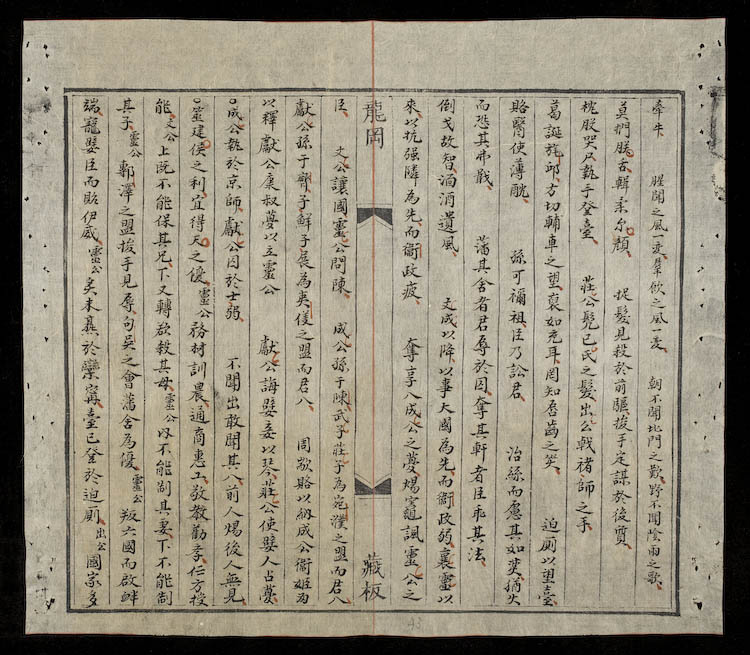 牽牛　腥聞之風一變羣飲之風一変　朝不聞北門之歎野不聞陰雨之歌
莫捫朕舌輯柔尔顏　捉髮見殺於前驅拔手定謀於後賈
枕股哭尸執手登臺　莊公髡己氏之髮出公戟褚師之手
葛誕旄邱方切輔車之望裒如充耳罔知唇齒之笑　迫厠以望臺
賂醫使薄酖　孫可禰祖臣乃訟君　治絲而慮其如焚猶火
而恐其弗戢　藩其舍者君辱於因奪其軒者臣乖其法
倒戈故智湎酒遺風　文成以降以事大國為先而衛政弱襄靈以
來以抗强隣為先而衛政疲　奪享入成公之夢煬竈諷靈公之
龍岡　藏板
臣　文公讓國靈公問陳　成公孫于陳武子莊子為宛濮之盟而君入
獻公孫于齊子鮮子展為夷儀之盟而君入　周歂賂以納成公衛姬為
以釋獻公康叔夢以立靈公　獻公誨嬖妾以琴莊公使嬖人占夢
成公執於京師獻公囚於士弱　不聞出敢聞其入前人煬後人無見
筮建侯之利宜得天之優靈公務材訓農通商惠工敬教勸孝仁方授
能文公上既不能保其兄下又轉欲殺其母靈公以不能制其妻下不能制
其子靈公鄟澤之盟捘手見辱句吳之會藩舍為優靈公叛六國而啟衅
端寵嬖臣而貽伊慼靈公炙未爇於欒寗臺已登於迫厠出公國家多